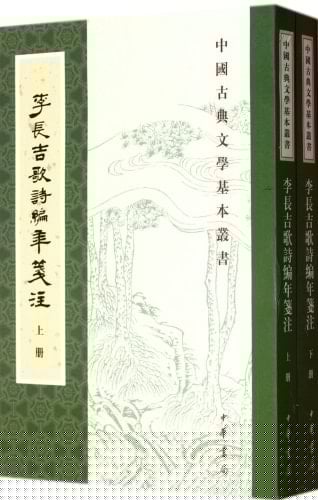 李長吉歌詩編年箋注
上冊
中國古典文學基本叢書
中華書局
中國古典文學基本叢書
李長吉歌詩編年箋注
上冊
中華書局
中國古典文學基本叢書
李長吉歌詩編年箋注
下冊
中華書局